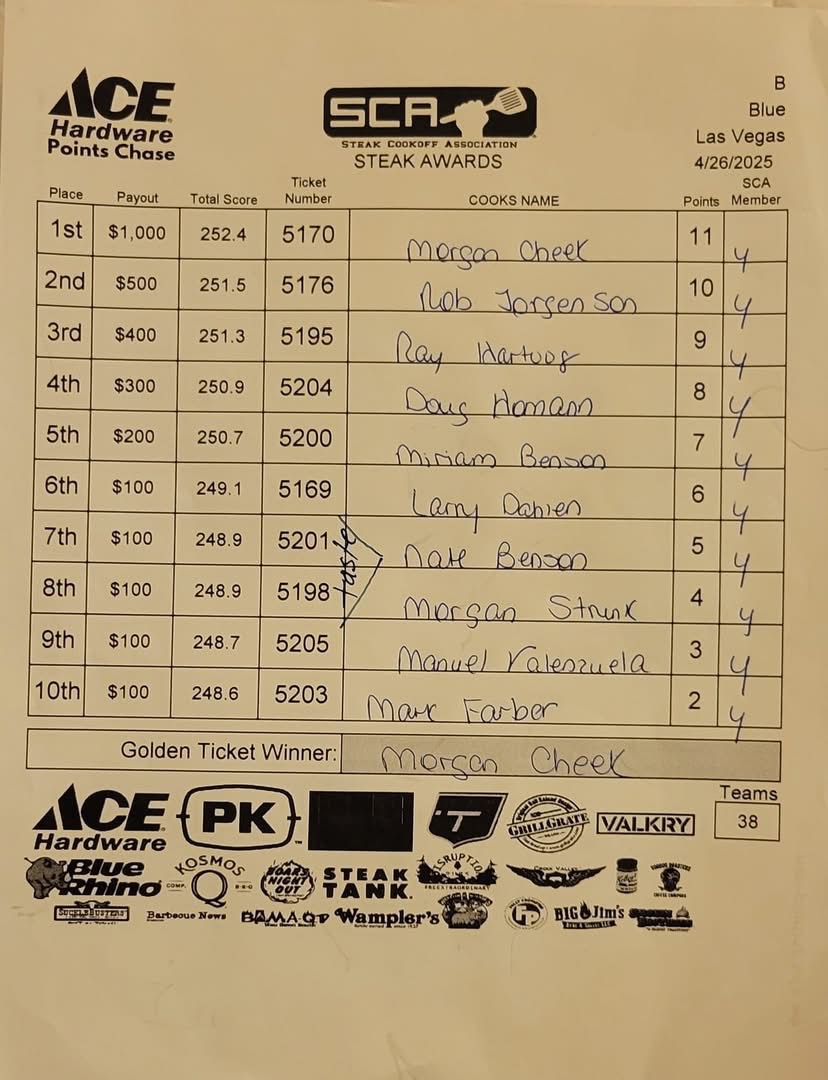 ACE
Hardware
Points Chase
SCA
STEAK COOKOFF ASSOCIATION
STEAK AWARDS
B
Blue
Las Vegas
4/26/2025
Place Payout Total Score Ticket Number COOKS NAME Points SCA Member
1st $1,000 252.4 5170 Morgan Cheek 11 y
2nd $500 251.5 5176 Rob Jorgenson 10 y
3rd $400 251.3 5195 Ray Hartoog 9 y
4th $300 250.9 5204 Doug Homann 8 y
5th $200 250.7 5200 Miriam Benson 7 y
6th $100 249.1 5169 Larry 6 y
7th $100 248.9 5201 Nate Benson 5 y
taste
8th $100 248.9 5198 Morgan Strunk 4 y
9th $100 248.7 5205 Manuel Valenzuela 3 y
10th $100 248.6 5203 Mark Farber 2 y
Golden Ticket Winner: Morgan Cheek
Teams
38
ACE Hardware PK T GRILLGRATE VALKRY
Blue Rhino KOSMOS Q STEAK TANK
Barbecue News BAMA-Q TV Wampler's BIG Jim's